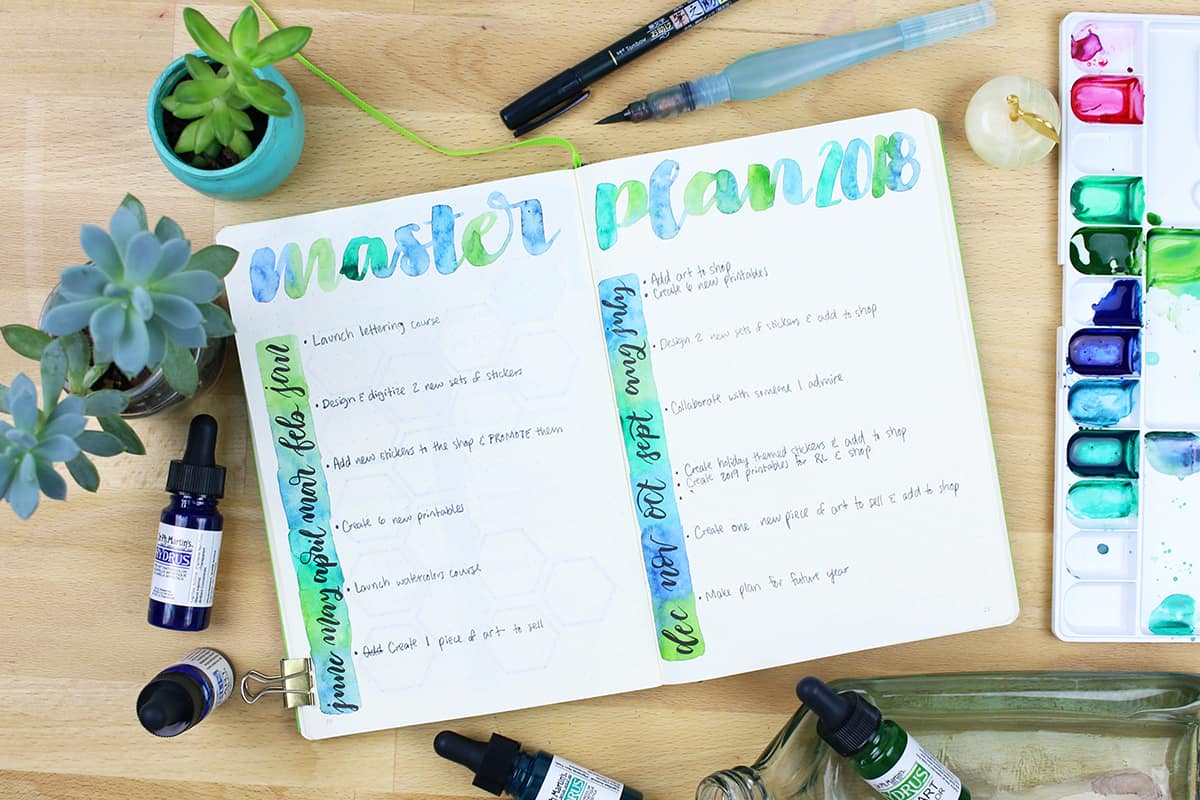 master plan 2018
jan
feb
mar
april
may
june
• Launch lettering course
• Design & digitize 2 new sets of stickers
• Add new stickers to the shop & PROMOTE them
• Create 6 new printables
• Launch watercolors course
• Add Create 1 piece of art to sell
july
aug
sept
oct
nov
dec
• Add art to shop
• Create 6 new printables
• Design 2 new sets of stickers & add to shop
• Collaborate with someone I admire
• Create holiday themed stickers & add to shop
• Create 2019 printables for RL & shop
•
• Create one new piece of art to sell & add to shop
• Make plan for future year
Tombow
Dr. Ph. Martin's.
HYDRUS
Ph. Martin's.
DRUS
HYDRUS
ART